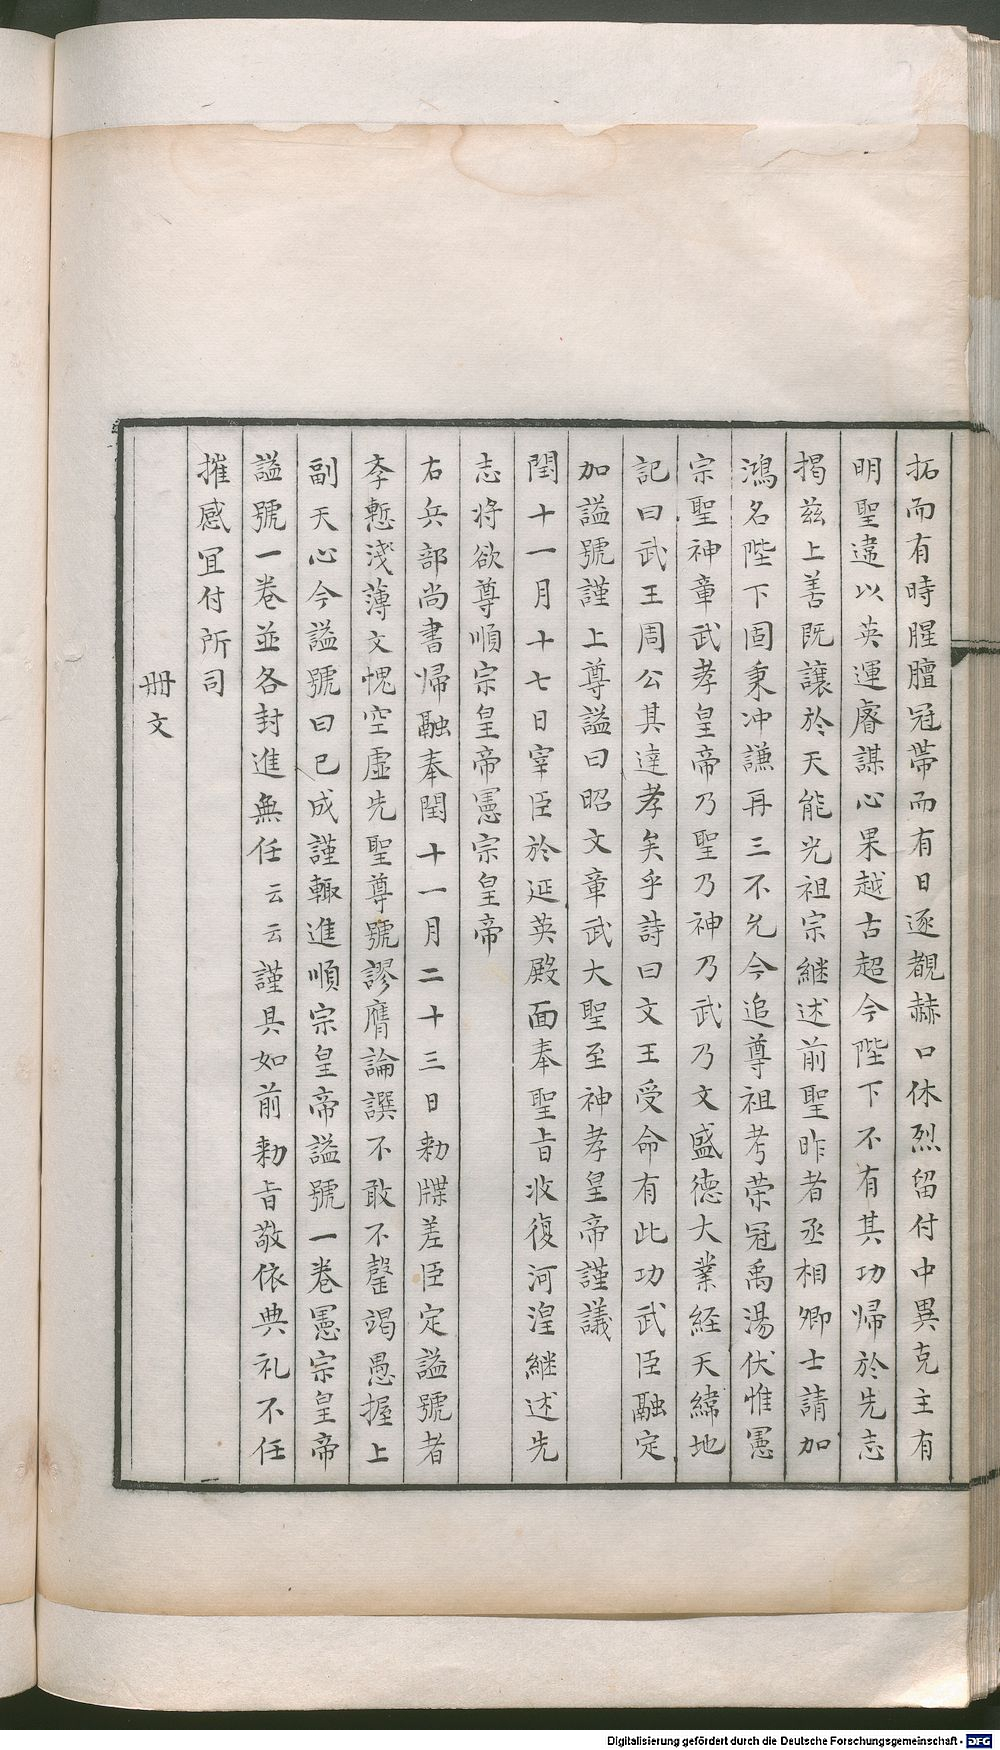 拓而有時腥膻冠帶而有日逐覩赫口休烈留付中異克主有
明聖違以英運睿謀心果越古超今陛下不有其功歸於先志
揭茲上善既讓於天能光祖宗継述前聖昨者丞相卿士請加
鴻名陛下固秉冲謙再三不允今追尊祖考荣冠禹湯伏惟憲
宗聖神章武孝皇帝乃聖乃神乃武乃文盛德大業経天緯地
記曰武王周公其達孝矣乎詩曰文王受命有此功武臣融定
加謚號謹上尊謚曰昭文章武大聖至神孝皇帝謹議
閏十一月十七日宰臣於延英殿面奉聖旨收復河湟継述先
志将欲尊順宗皇帝憲宗皇帝
右兵部尚書歸融奉閏十一月二十三日勑牒差臣定謚號者
李慙淺薄文愧空虛先聖尊號謬膺論譔不敢不罄竭愚握上
副天心今謚號曰已成謹輙進順宗皇帝謚號一卷憲宗皇帝
謚號一卷並各封進無任云云謹具如前勑旨敬依典礼不任
摧感宜付所司
冊文
Digitalisierung gefördert durch die Deutsche Forschungsgemeinschaft - DFG